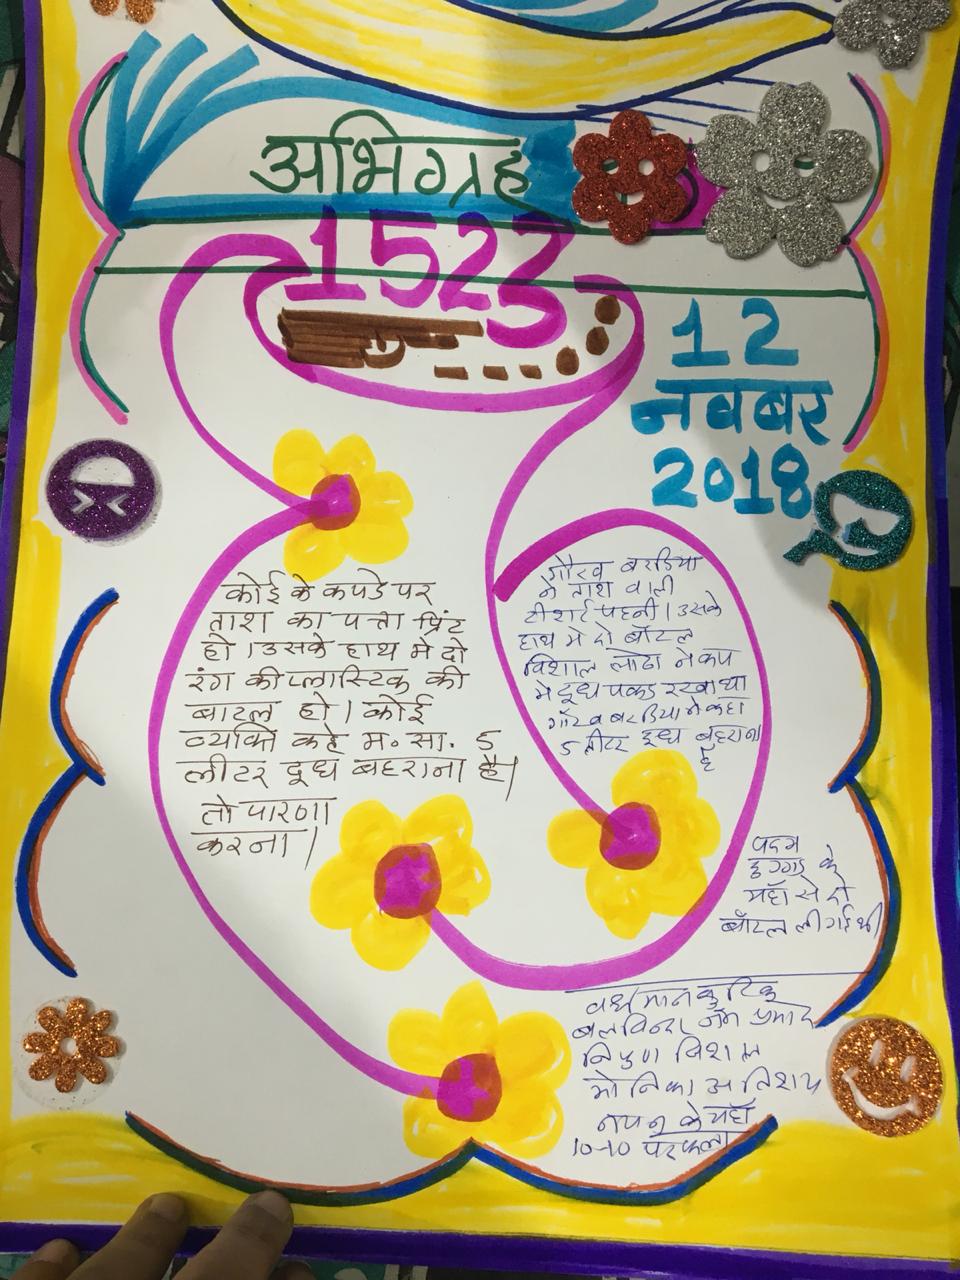 अभिग्रह
1523
12
नवबर
2018
कोई के कपडे पर
ताश का पत्ता प्रिंट
हो। उसके हाथ मे दो
रंग की प्लास्टिक की
बाटल हो। कोई
व्यक्ति कहे म. सा. 5
लीटर दूध बहराना है।
तो पारणा
करना।
गौरव बरडिया
ने ताश वाली
टीशर्ट पहनी। उसके
हाथ मे दो बॉटल
विशाल लोढा ने कप
मे दूध पकड रखा था
गॉरव बरडिया ने कहा
5 लीटर दूध बहराना
है
पदम
के
यहाँ से दो
बॉटल ली गई थी
वर्धमान
निपुण विशाल
मोनिका अतिशय
के यहाँ
10-10 पर फला